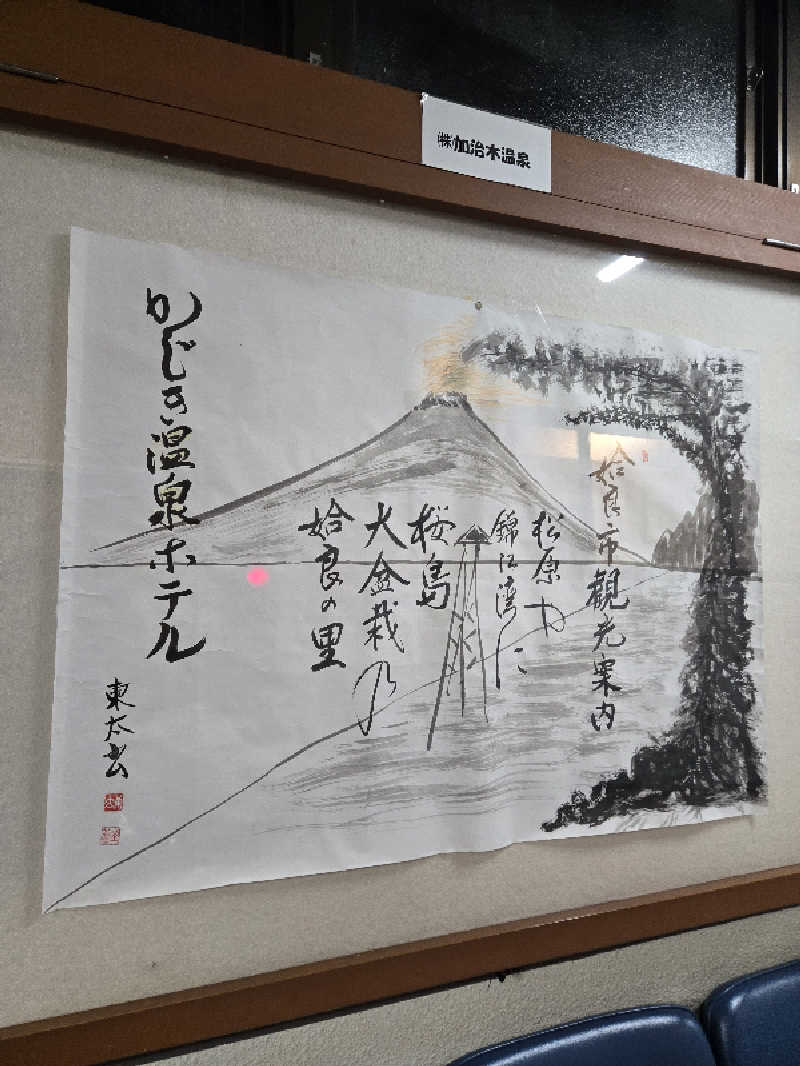 ㈱加治木温泉
姶良市観光案内
松原や
錦江湾に
桜島
大盆栽乃
姶良の里
かじき温泉ホテル
東太書